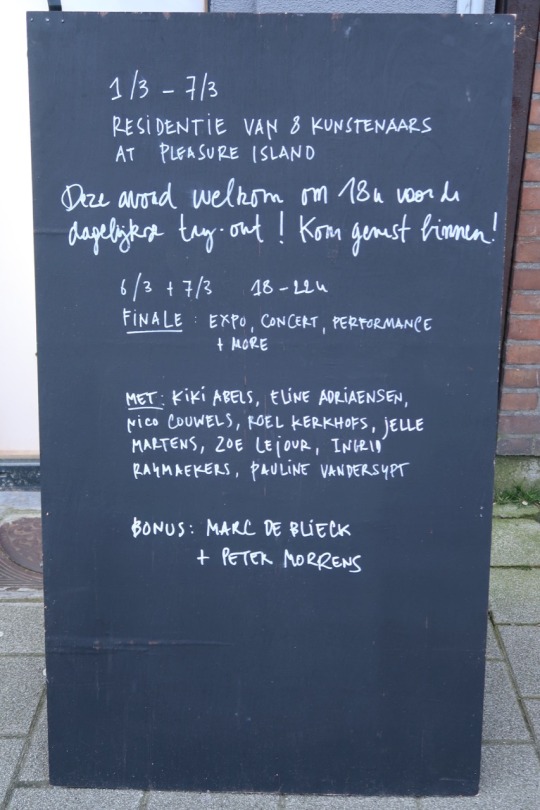 1/3 - 7/3
RESIDENTIE VAN 8 KUNSTENAARS
AT PLEASURE ISLAND
Deze avond welkom om 18u voor de
dagelijkse try-out! Kom gerust binnen!
6/3 + 7/3 18-22u
FINALE: EXPO, CONCERT, PERFORMANCE
+ MORE
MET: KIKI ABELS, ELINE ADRIAENSEN,
NICO COUWELS, ROEL KERKHOFS, JELLE
MARTENS, ZOE LEJOUR, INGRID
RAYMAEKERS, PAULINE VANDERSYPT
BONUS: MARC DE BLIECK
+ PETER MORRENS